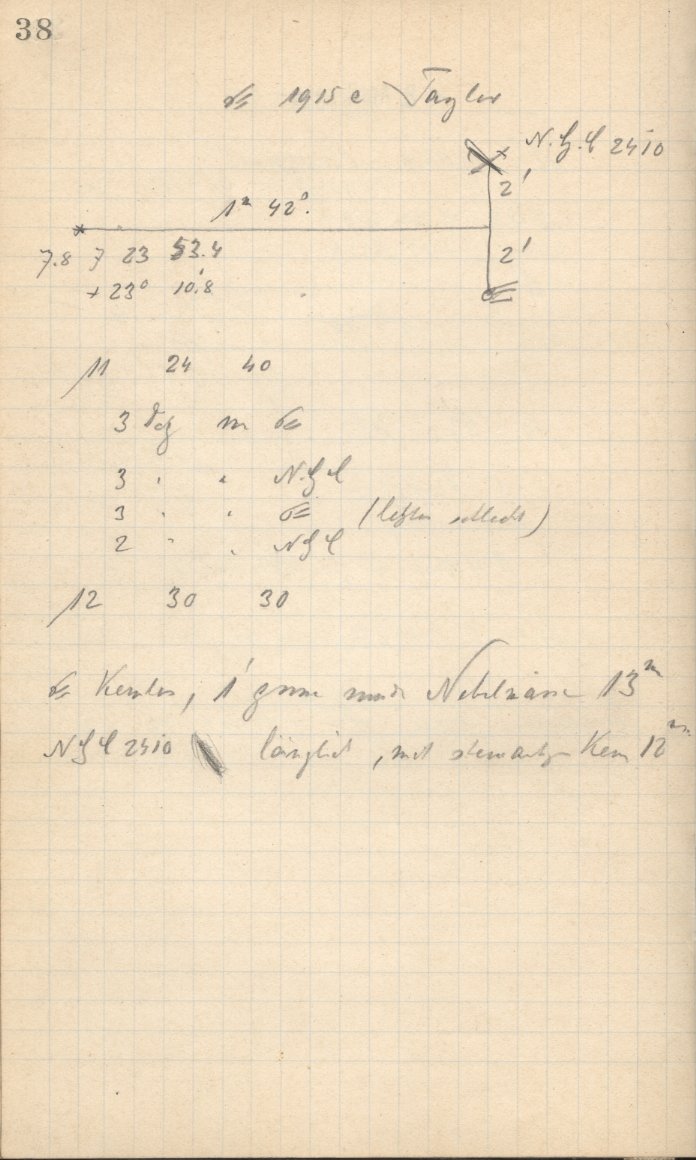 38
☄ 1915 e Taylor
N.G.C 2410
2'
1ᵐ 42ˢ.
2'
7.8 7 23 53.4
+ 23° 10.'8
☄
11 24 40
3 m ☄
3 " " NGC
3 " " ☄ (letzten schlecht)
2 " " NGC
12 30 30
☄ Kernlos, 1' runde Nebelmasse 13ᵐ
NGC 2410 länglich, mit sternartigen Kern 12ᵐ